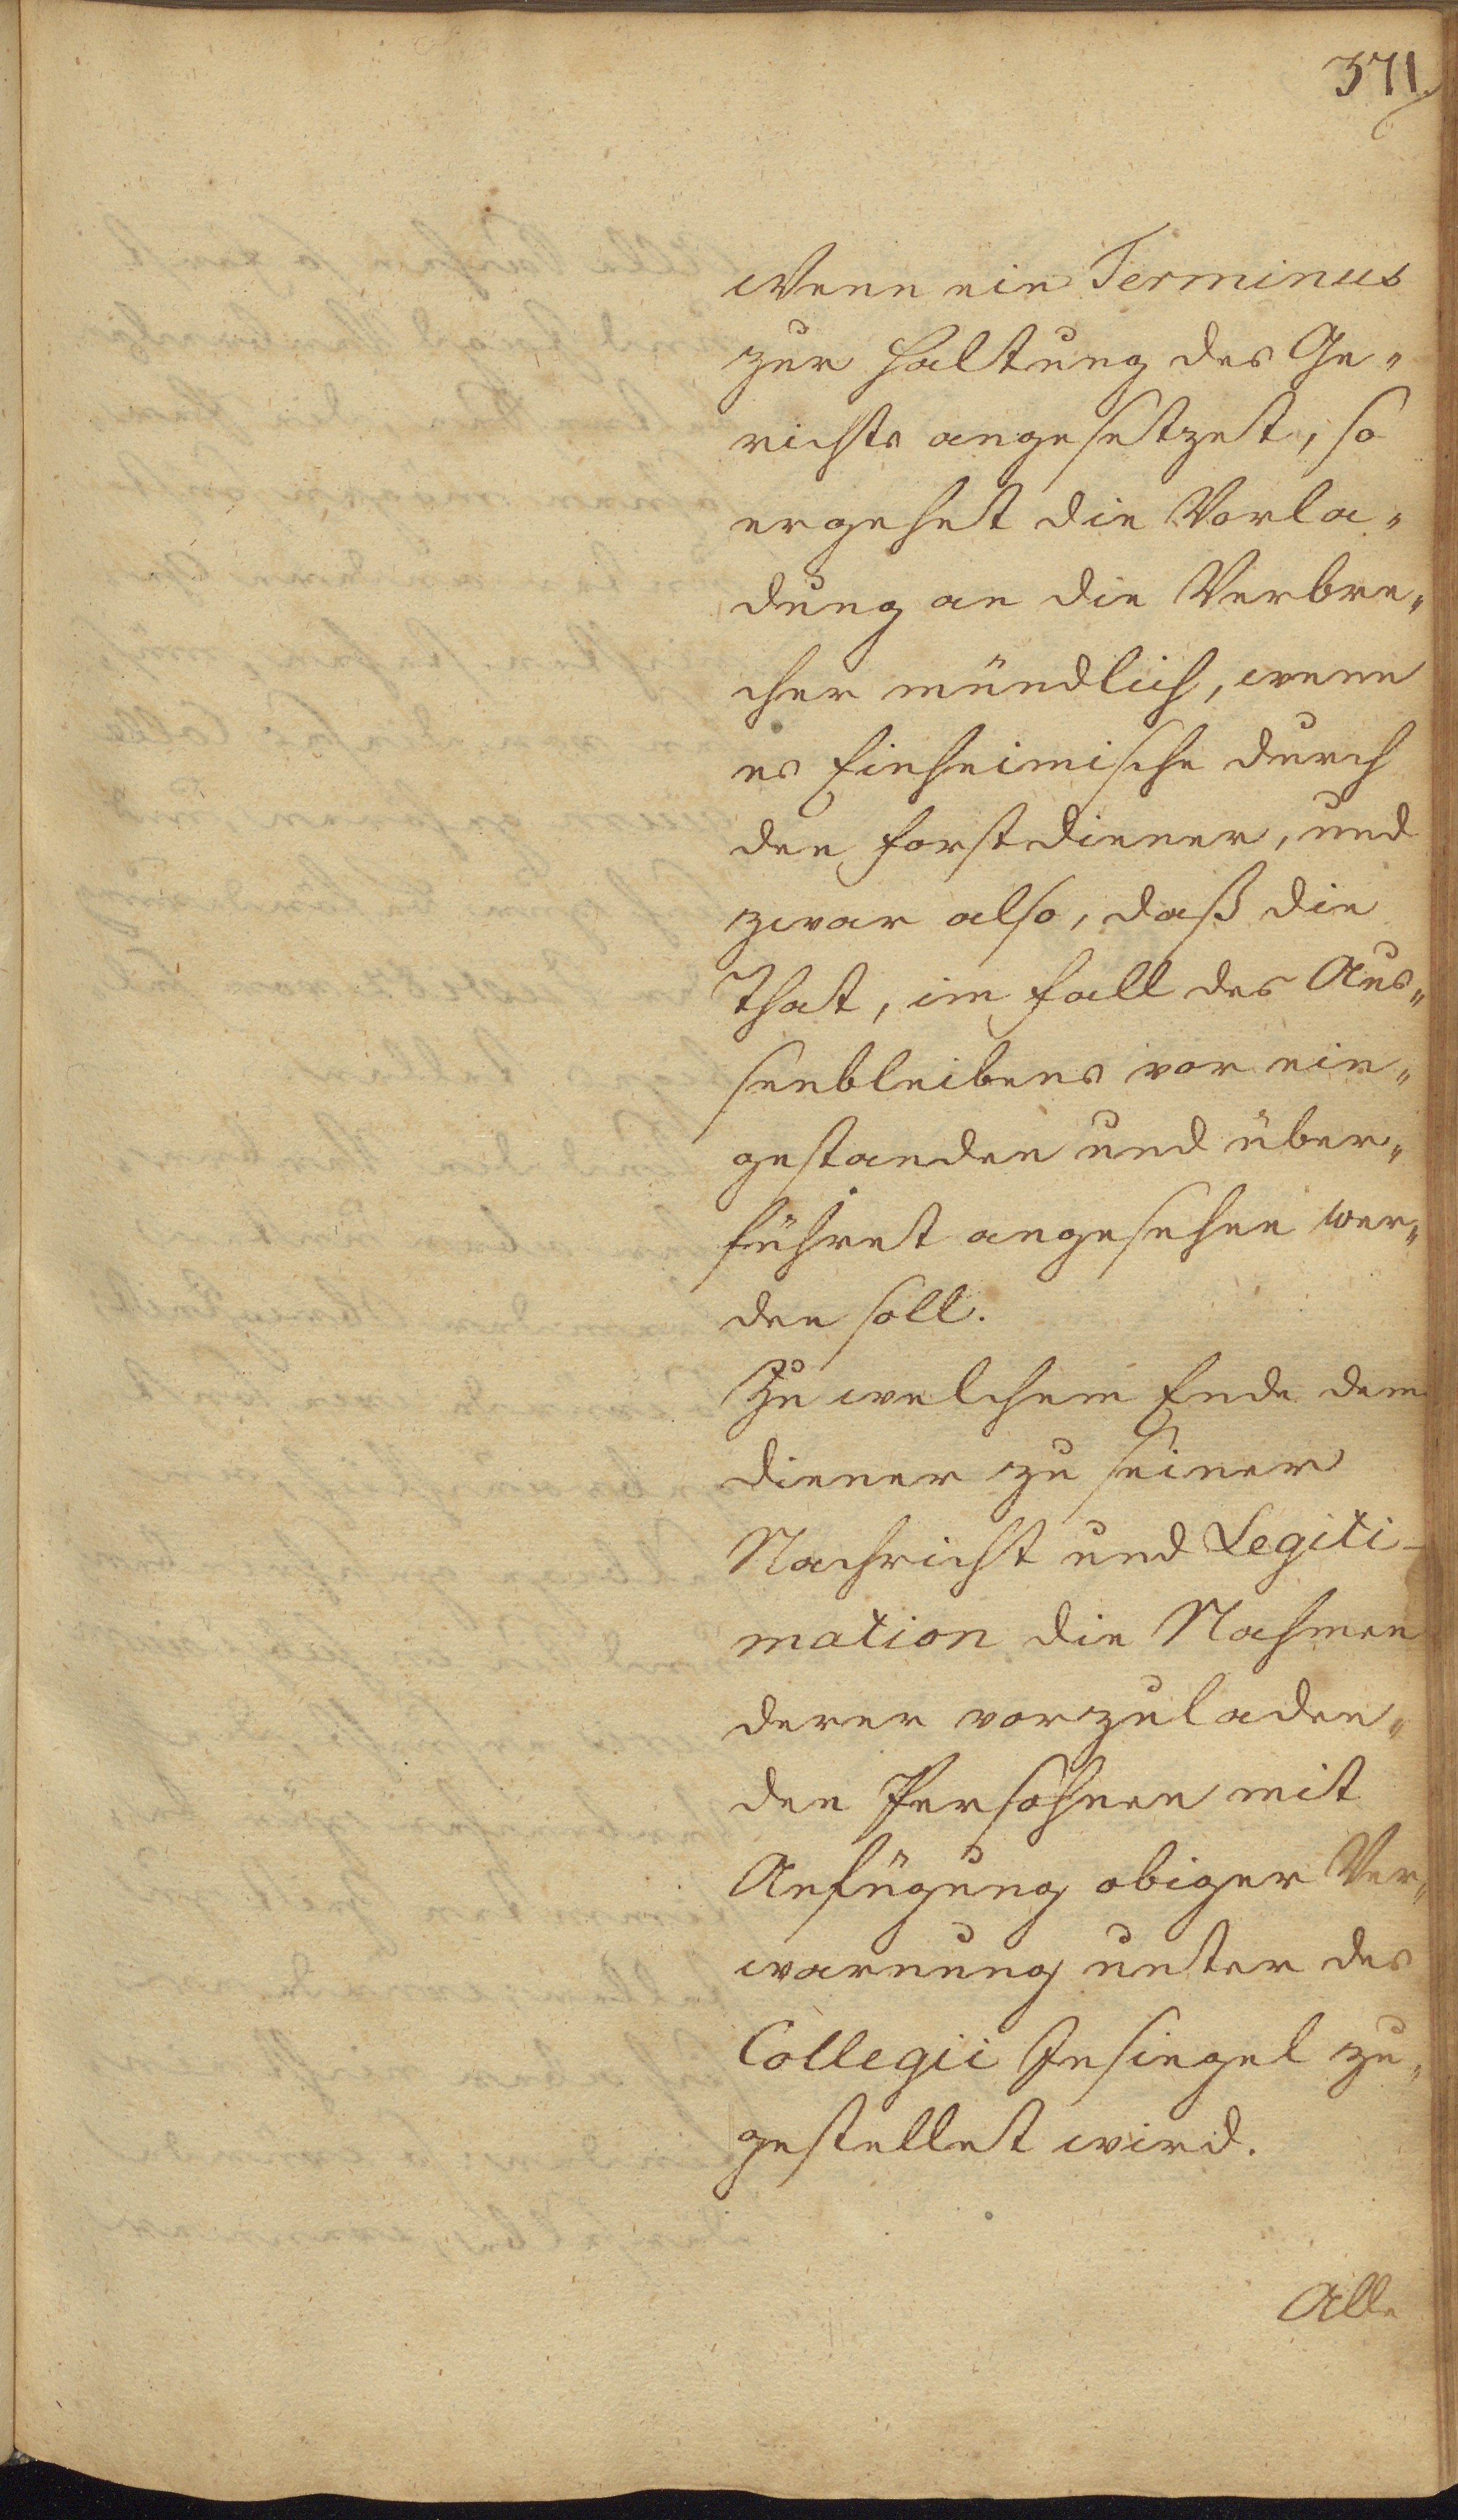 371
Wenn ein Terminus
zur Haltung des Ge„
richts angesetzet, so
ergehet die Vorla„
dung an die Verbre„
cher mündlich, wenn
es Einheimische durch
den Forstdiener, und
zwar also, daß die
That, im Fall des Aus„
senbleibens vor ein„
gestanden und über„
führet angesehen wer„
den soll.
Zu welchem Ende dem
Diener zu seiner
Nachricht und Legiti-
mation die Nahmen
derer vorzuladen„
den Persohnen mit
Anfügung obiger Ver„
warnung unter des
Collegii Insiegel zu„
gestellet wird.
Alle